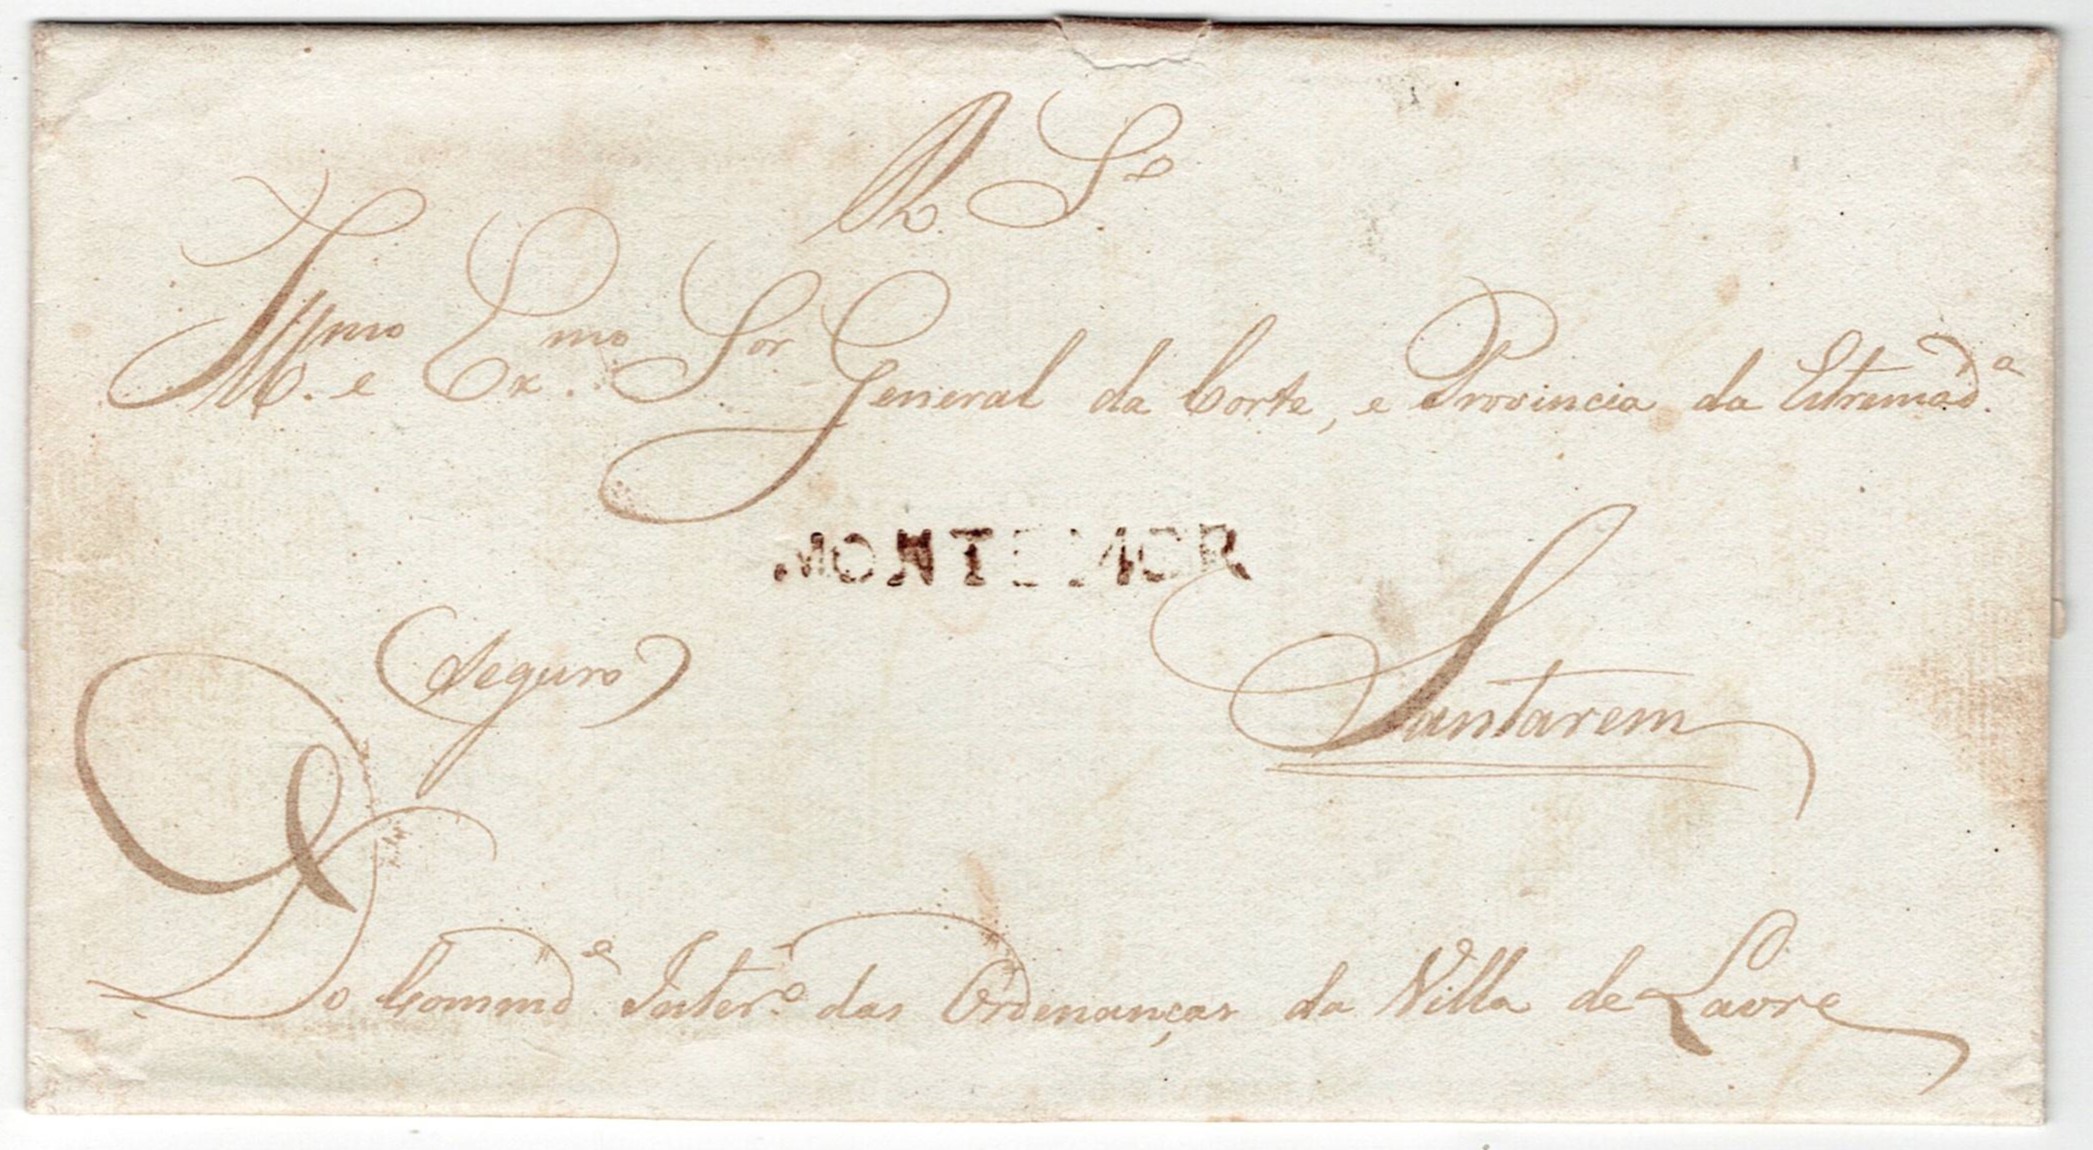 R. S.º
Ill.mo e Ex.mo Sor General da Corte, e Provincia da Estremad.a
MONTEMOR
(Seguro)
Santarem
Do Commd.e Inter.o das Ordenanças da Villa de Lavre